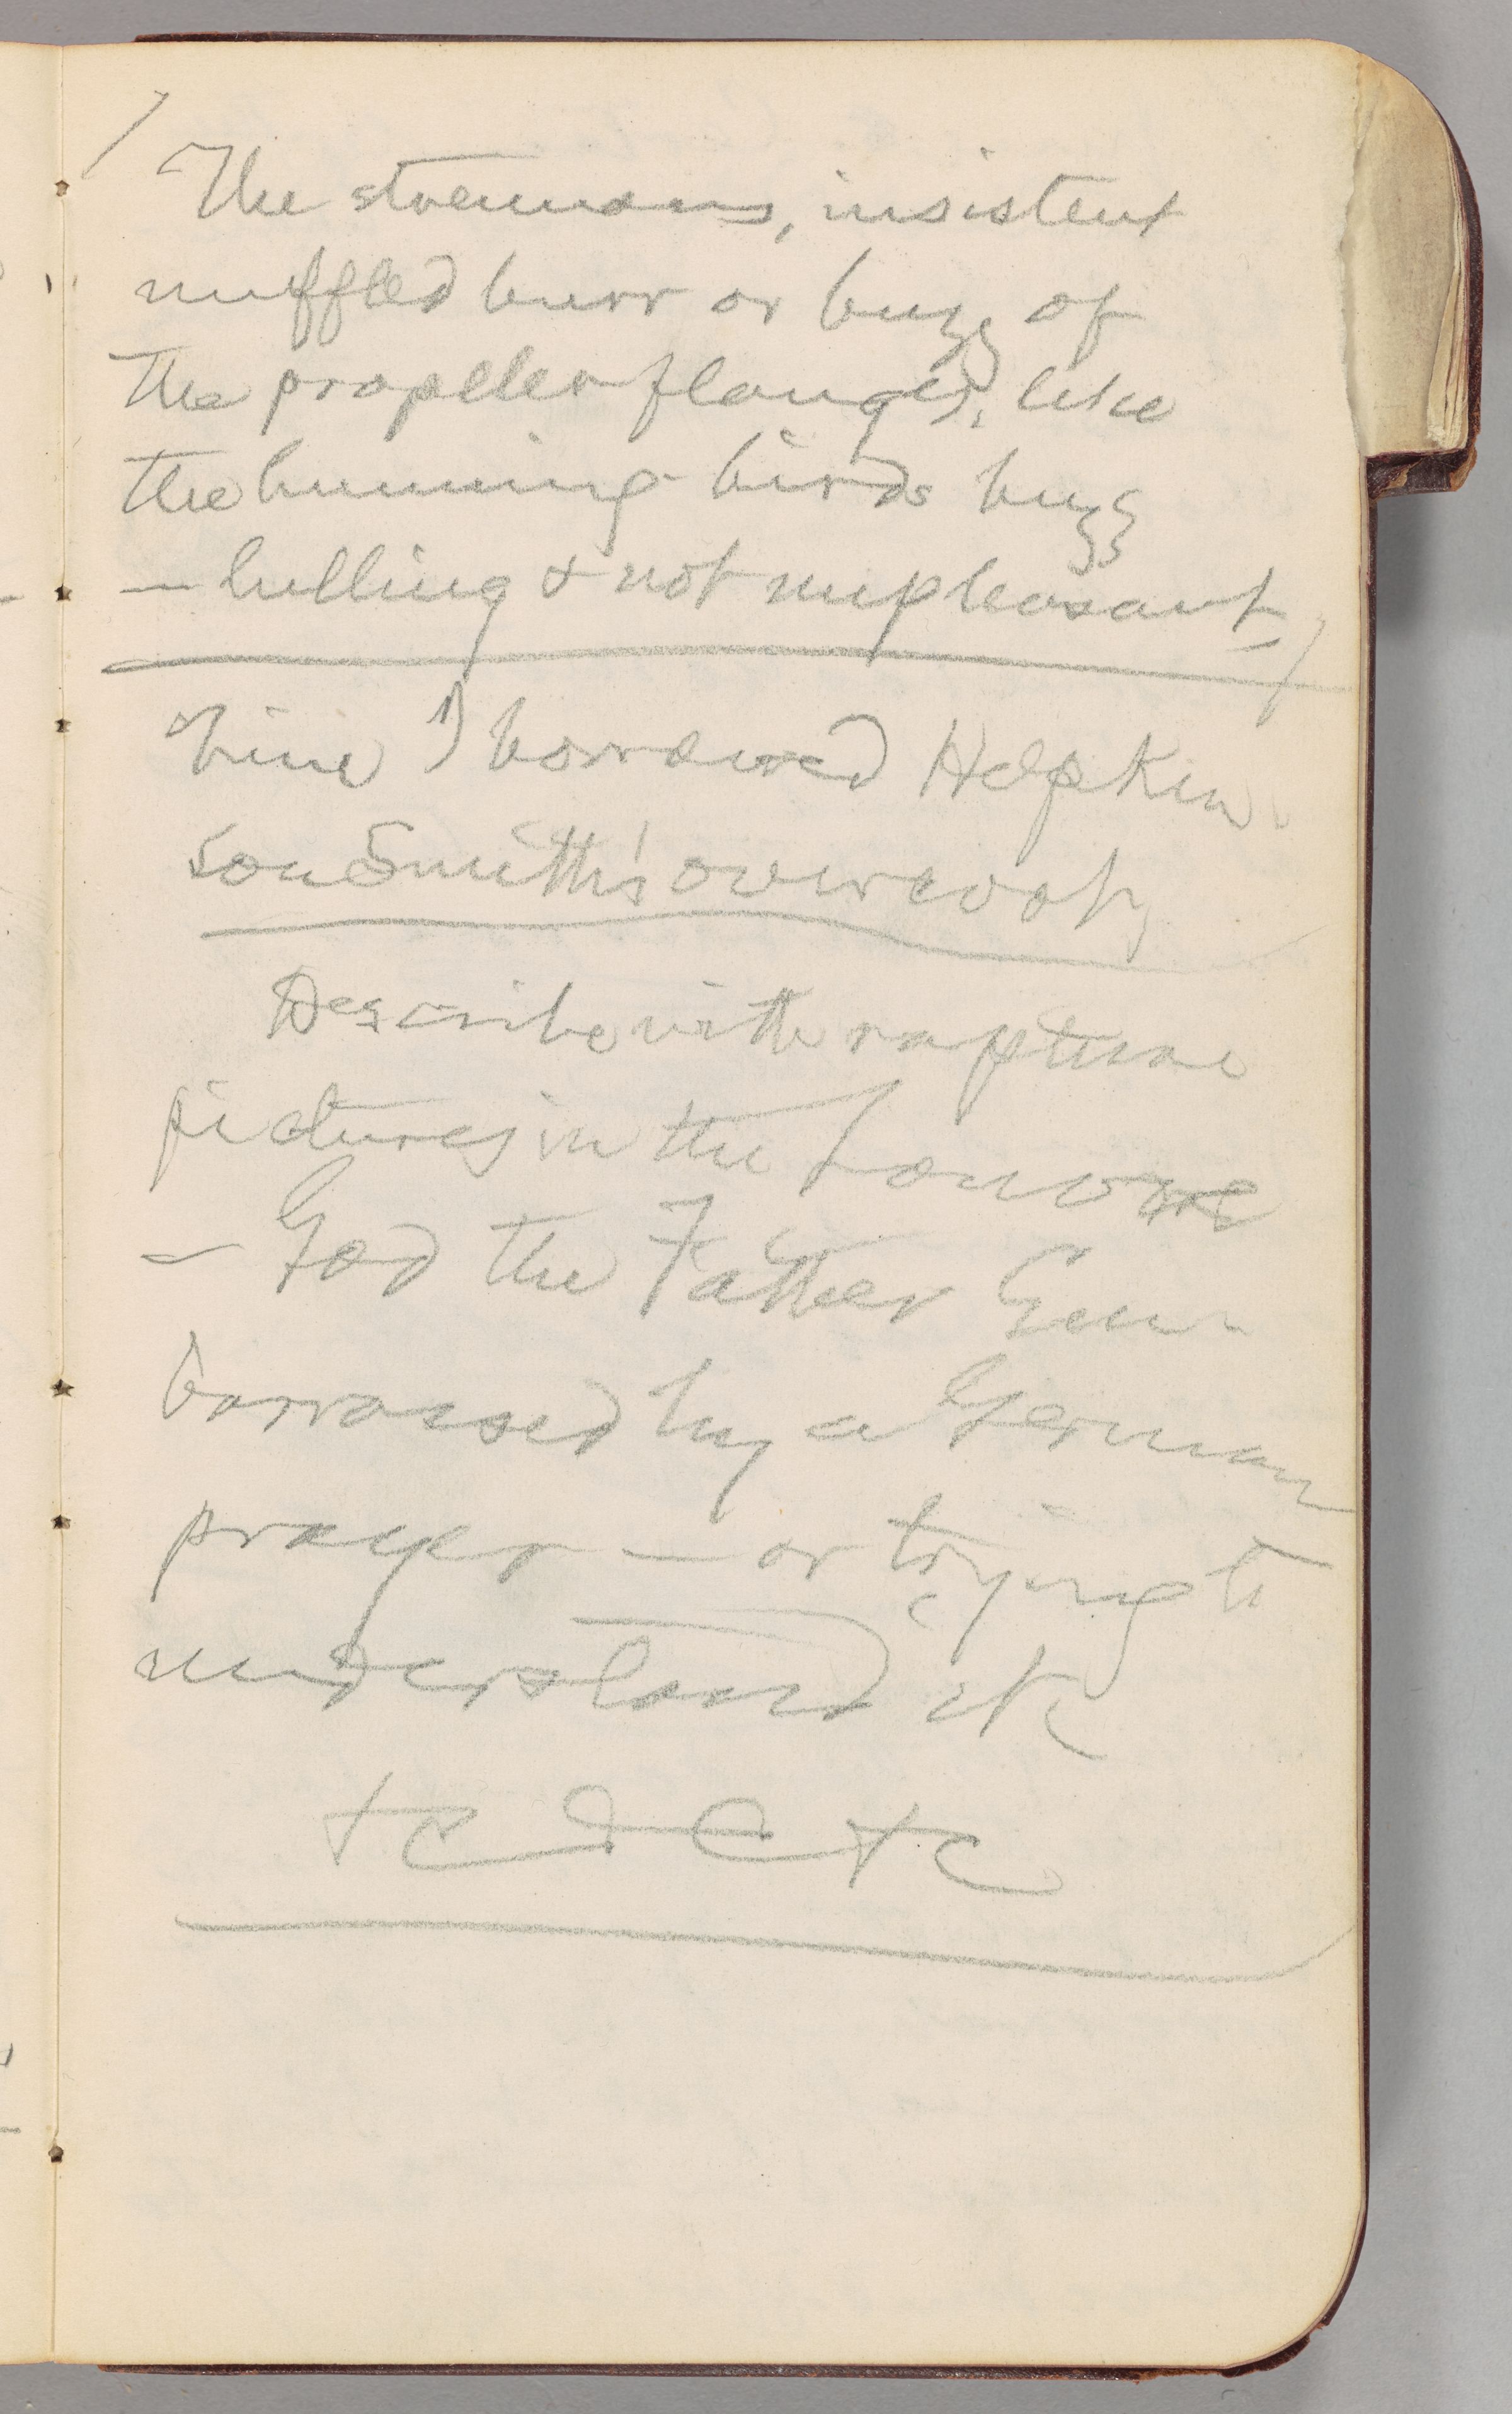 The strenuous, insistent
muffled burr or buzz of
the propeller flanges, like
the humming-birds buzz
— lulling & not unpleasant.
Time I borrowed Hopkin-
son Smith's overcoat.
Describe with rapture
pictures in the Louvre
— God the Father Em-
barrassed by a German
prayer — or trying to
understand it
&c &c